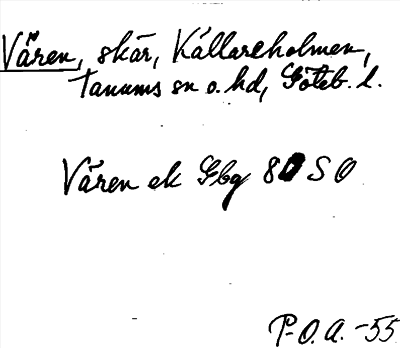 Vären, skär, Källareholmen,
Tanums sn o. hd, Göteb. l.
Vären ek Gbg 80 SO
P-O.A. -55